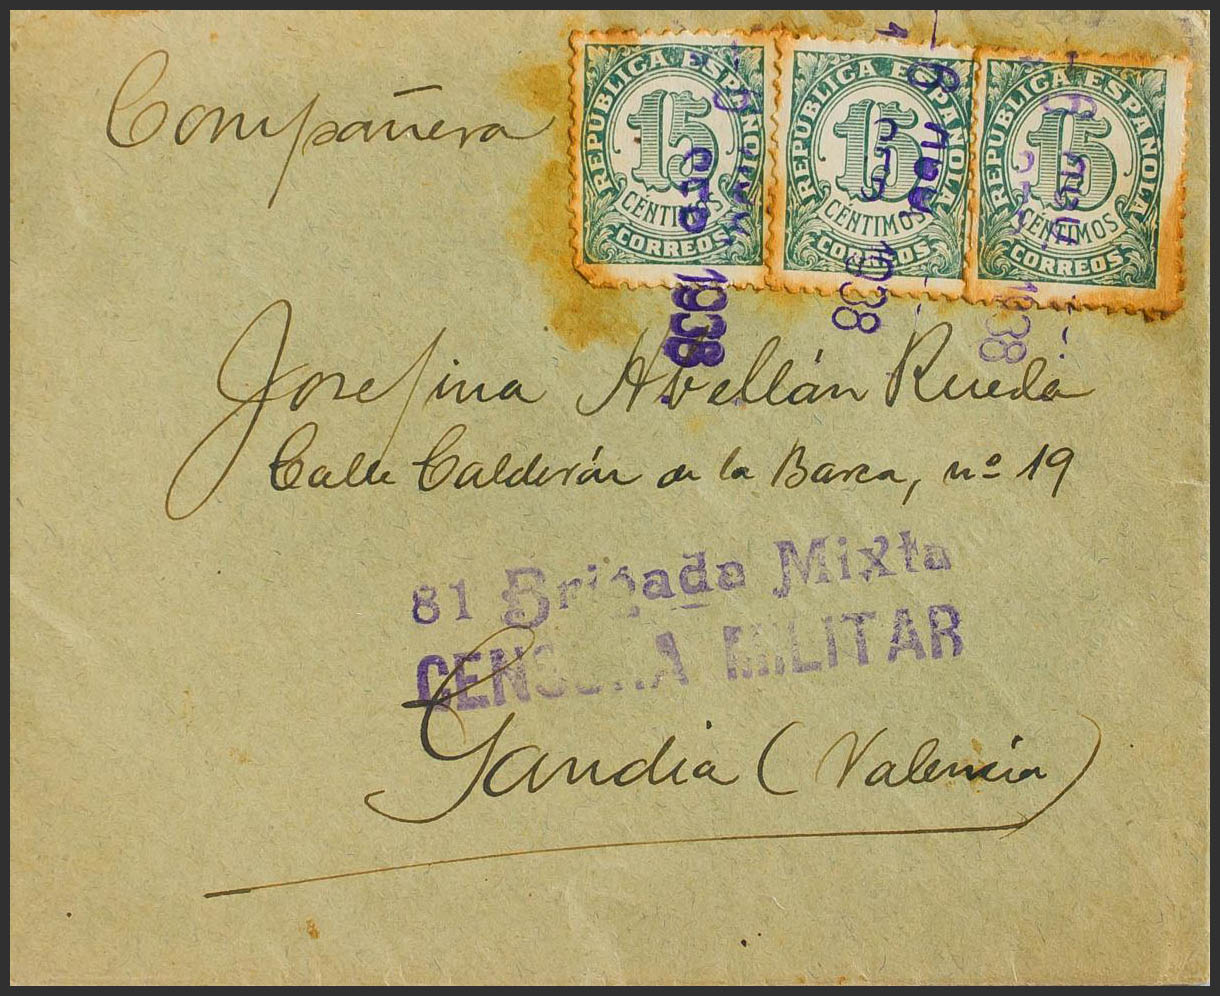 Compañera
REPUBLICA ESPAÑOLA
15
CENTIMOS
CORREOS
REPUBLICA ESPAÑOLA
15
CENTIMOS
CORREOS
REPUBLICA ESPAÑOLA
15
CENTIMOS
CORREOS
1938
1938
1938
Josefina Abellán Rueda
Calle Calderón de la Barca, nº 19
81 Brigada Mixta
CENSURA MILITAR
Gandia (Valencia)